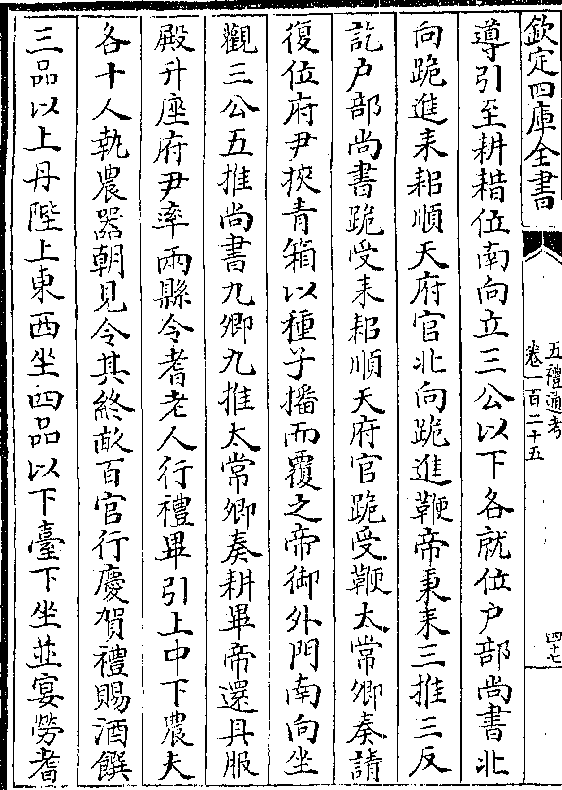 欽定四庫全書
五禮通考
卷一百二十五
四十七
導引至耕耤位南向立三公以下各就位户部尚書北
向跪進耒耜順天府官北向跪進鞭帝秉耒三推三反
訖户部尚書跪受耒耜順天府官跪受鞭太常卿奏請
復位府尹挾青箱以種子播而覆之帝御外門南向坐
觀三公五推尚書九卿九推太常卿奏耕畢帝還具服
殿升座府尹率兩縣令耆老人行禮畢引上中下農夫
各十人執農器朝見令其終畝百官行慶賀禮賜酒饌
三品以上丹陛上東西坐四品以下臺下坐並宴勞耆